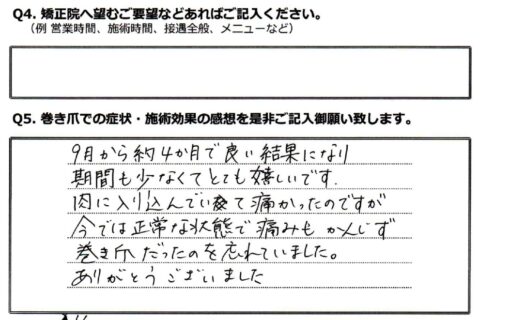 Q4. 矯正院へ望むご要望などあればご記入ください。
（例 営業時間、施術時間、接遇全般、メニューなど）
Q5. 巻き爪での症状・施術効果の感想を是非ご記入御願い致します。
9月から約4か月で良い結果になり
期間も少なくてとても嬉しいです.
肉に入り込んでいて痛かったのですが
今では正常な状態で痛みもかんじず
巻き爪だったのを忘れていました。
ありがとうございました